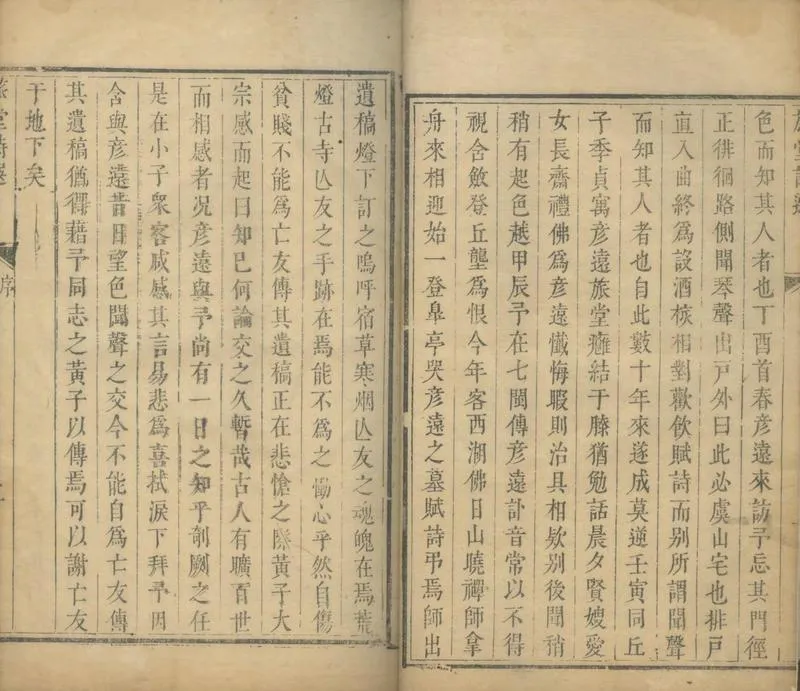 旅堂詩選
色而知其人者也丁酉首春彥遠來訪予忘其門徑
正徘徊路側聞琴聲出戸外曰此必虞山宅也排戸
直入曲終為設酒核相對歡飲賦詩而別所謂聞聲
而知其人者也自此數十年來遂成莫逆壬寅同丘
子季貞寓彥遠旅堂癰結于膝猶勉話晨夕賢嫂愛
女長齋禮佛為彥遠懺悔暇則治具相欵別後聞稍
稍有起色越甲辰予在七閩傳彥遠訃音常以不得
視含斂登丘壟為恨今年客西湖佛日山曉禪師拿
舟來相迎始一登皐亭哭彥遠之墓賦詩弔焉師出
遺稿燈下訂之嗚呼宿草寒烟亾友之魂魄在焉荒
燈古寺亾友之手跡在焉能不為之慟心乎然自傷
貧賤不能為亡友傳其遺稿正在悲愴之際黃子大
宗感而起曰知已何論交之久暫哉古人有曠百世
而相感者况彥遠與予尚有一日之知乎剞劂之任
是在小子衆客咸感其言易悲為喜拭淚下拜予因
念與彥遠昔日望色聞聲之交今不能自為亡友傳
其遺稿猶得藉予同志之黃子以傳焉可以謝亡友
于地下矣
旅堂詩選
序